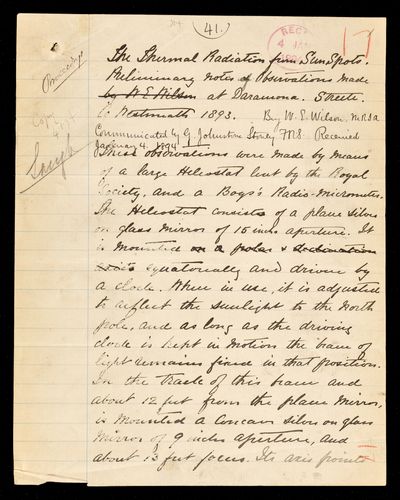 41.
Proceedings
The Thermal Radiation from Sun Spots.
Preliminary notes of Observations made
by W E Wilson at Daramona. Streete.
Co Westmeath 1893. By W. E. Wilson. M.R.I.A
Communicated by G Johnstone Stoney FRS. Received
January 4. 1894
These observations were made by means
of a large Heliostat lent by the Royal
Society, and a Boys's Radio-Micrometer.
The Heliostat consists of a plane silver
on glass mirror of 15 inches aperture. It
is mounted on a polar & declination
axis equatorially and driven by
a clock. When in use, it is adjusted
to reflect the sunlight to the North
pole, and as long as the driving
clock is kept in motion the beam of
light remains fixed in that position.
In the track of this beam and
about 12 feet from the plane mirror,
is mounted a concave silver on glass
mirror of 9 inches aperture, and
about 13 feet focus. Its axis points